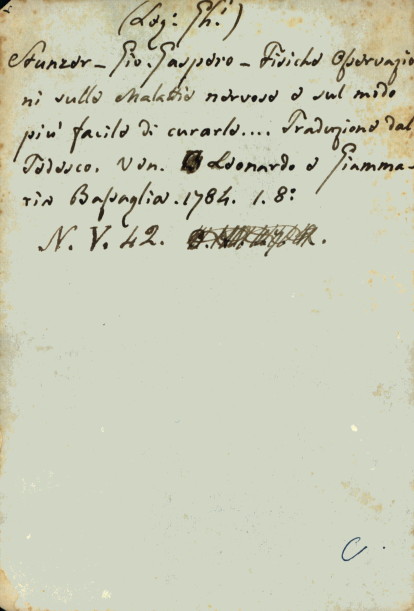 (Leg: Gh.i)
Stunzer - Gio. Gasparo - Fisiche Osservazio
ni sulle Malattie nervose e sul modo
più facile di curarle.... Traduzione dal
Tedesco. Ven. Leonardo e Giamma-
ria Bassaglia. 1784. 1. 8:
N. V. 42.
C.